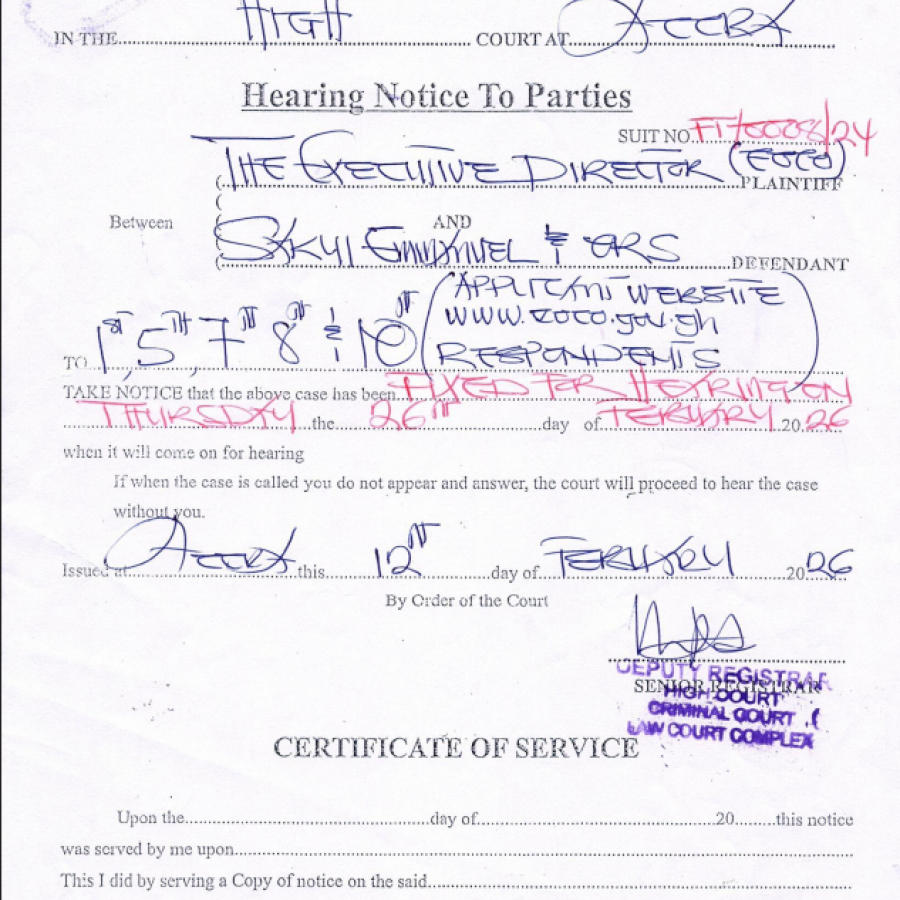 IN THE HIGH COURT AT ACCRA
Hearing Notice To Parties
SUIT NO FT/0008/24
THE EXECUTIVE DIRECTOR (EOCO)
PLAINTIFF
Between
AND
EMMANUEL & ORS
DEFENDANT
TO 1ST, 5TH, 7TH 8TH & 10TH
(APPLICANT WEBSITE
www.eoco.gov.gh
RESPONDENTS
TAKE NOTICE that the above case has been FIXED FOR HEARING ON
THURSDAY the 26TH day of FEBRUARY 2026
when it will come on for hearing
If when the case is called you do not appear and answer, the court will proceed to hear the case
without you.
Issued at ACCRA this 12TH day of FEBRUARY 2026
By Order of the Court
DEPUTY REGISTRAR
SENIOR REGISTRAR
HIGH COURT
CRIMINAL COURT
LAW COURT COMPLEX
CERTIFICATE OF SERVICE
Upon the day of 20 this notice
was served by me upon
This I did by serving a Copy of notice on the said